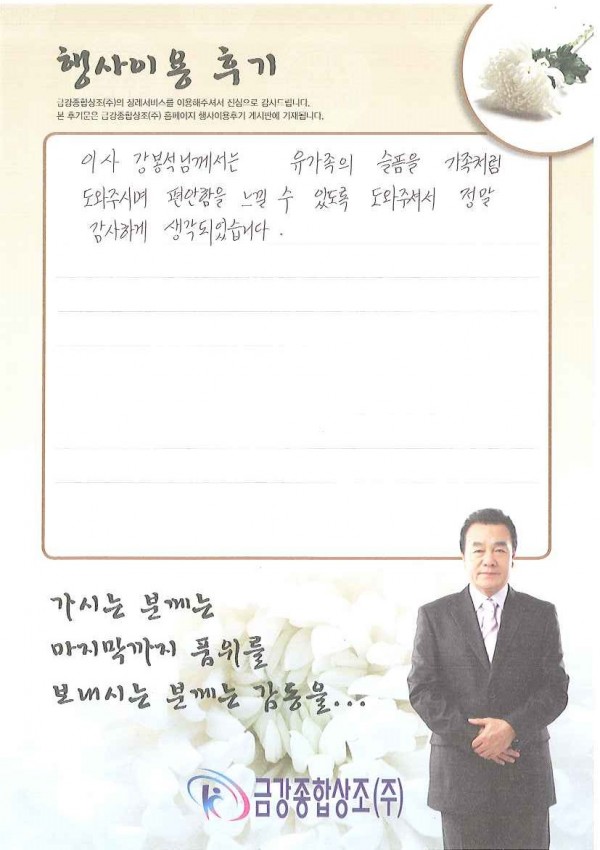 행사이용 후기
금강종합상조(주)의 장례서비스를 이용해주셔서 진심으로 감사드립니다.
본 후기문은 금강종합상조(주) 홈페이지 행사이용후기 게시판에 기재됩니다.
이사 강봉석님께서는 유가족의 슬픔을 가족처럼
도와주시며 편안함을 느낄 수 있도록 도와주셔서 정말
감사하게 생각되었습니다.
가시는 분께는
마지막까지 품위를
보내시는 분께는 감동을...
금강종합상조(주)